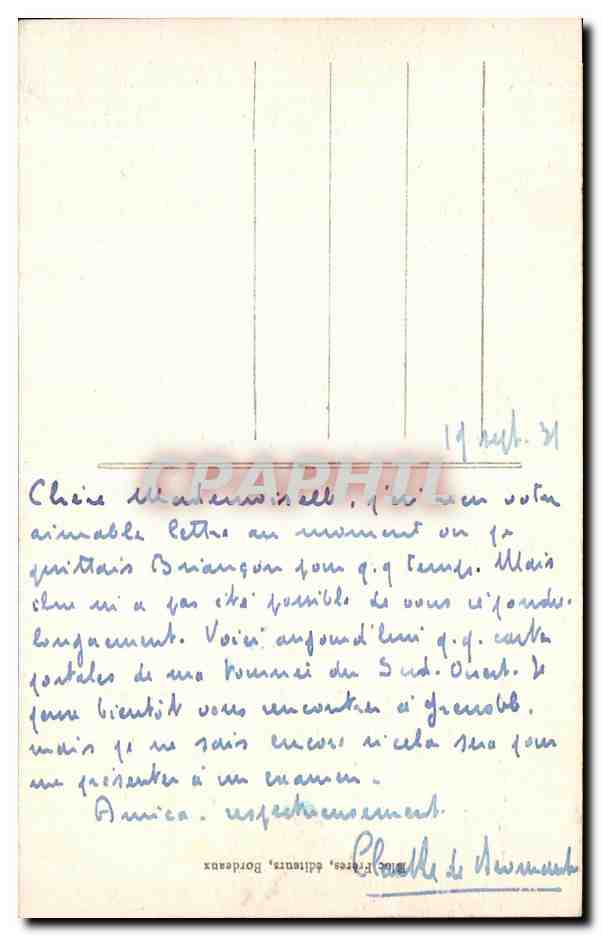 19 sept. 31
CPAPHIL
Chère Mademoiselle, j'ai reçu votre
aimable lettre au moment où je
quittais Briançon pour q.q temps. Mais
il ne m'a pas été possible de vous répondre
longuement. Voici aujourd'hui q.q. cartes
postales de ma tournée du Sud-Ouest. Je
pense bientôt vous rencontrer à Grenoble,
mais je ne sais encore si cela sera pour
me présenter à un examen.
Amica. respectueusement.
Claude de
Frères, éditeurs, Bordeaux